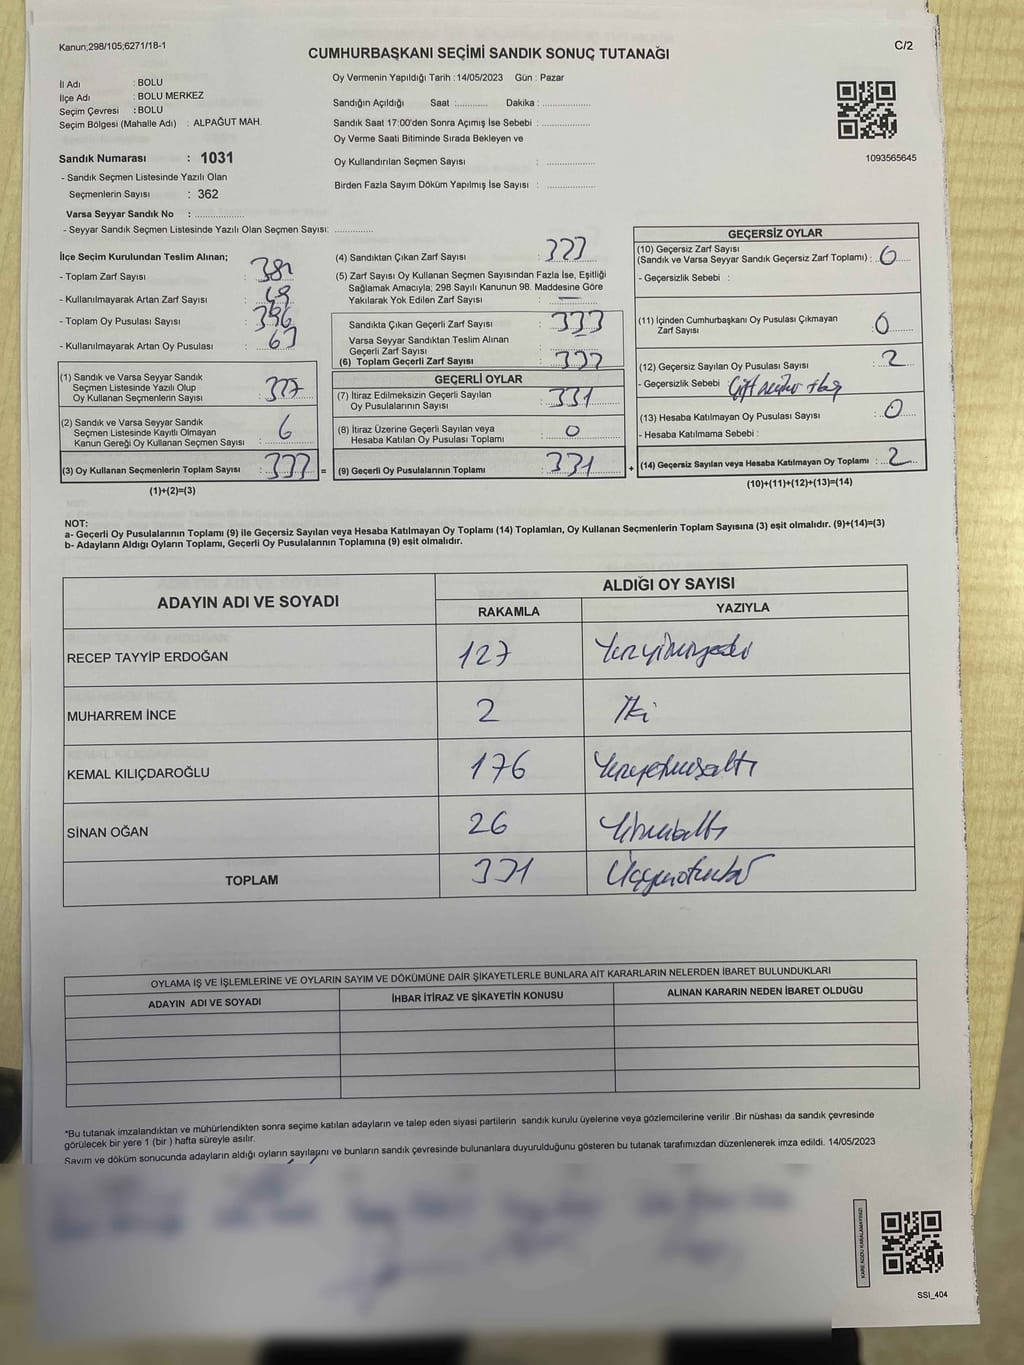 Kanun;298/105;6271/18-1
C/2
CUMHURBAŞKANI SEÇİMİ SANDIK SONUÇ TUTANAĞI
İl Adı : BOLU
İlçe Adı : BOLU MERKEZ
Seçim Çevresi : BOLU
Seçim Bölgesi (Mahalle Adı) : ALPAĞUT MAH.
Sandık Numarası : 1031
- Sandık Seçmen Listesinde Yazılı Olan
Seçmenlerin Sayısı : 362
Varsa Seyyar Sandık No : ..............
- Seyyar Sandık Seçmen Listesinde Yazılı Olan Seçmen Sayısı: ..............
Oy Vermenin Yapıldığı Tarih :14/05/2023 Gün : Pazar
Sandığın Açıldığı Saat :........... Dakika : ..............
Sandık Saat 17:00'den Sonra Açımış İse Sebebi : ..............
Oy Verme Saati Bitiminde Sırada Bekleyen ve
Oy Kullandırılan Seçmen Sayısı : ..............
Birden Fazla Sayım Döküm Yapılmış İse Sayısı : ..............
1093565645
İlçe Seçim Kurulundan Teslim Alınan;
- Toplam Zarf Sayısı :
- Kullanılmayarak Artan Zarf Sayısı :
- Toplam Oy Pusulası Sayısı : 396
- Kullanılmayarak Artan Oy Pusulası : 63
(1) Sandık ve Varsa Seyyar Sandık
Seçmen Listesinde Yazılı Olup
Oy Kullanan Seçmenlerin Sayısı : 327
(2) Sandık ve Varsa Seyyar Sandık
Seçmen Listesinde Kayıtlı Olmayan
Kanun Gereği Oy Kullanan Seçmen Sayısı : 6
(3) Oy Kullanan Seçmenlerin Toplam Sayısı : 333 =
(1)+(2)=(3)
(4) Sandıktan Çıkan Zarf Sayısı : 333
(5) Zarf Sayısı Oy Kullanan Seçmen Sayısından Fazla İse, Eşitliği
Sağlamak Amacıyla; 298 Sayılı Kanunun 98. Maddesine Göre
Yakılarak Yok Edilen Zarf Sayısı : —
Sandıkta Çıkan Geçerli Zarf Sayısı : 333
Varsa Seyyar Sandıktan Teslim Alınan
Geçerli Zarf Sayısı :
(6) Toplam Geçerli Zarf Sayısı : 333
GEÇERLİ OYLAR
(7) İtiraz Edilmeksizin Geçerli Sayılan
Oy Pusulalarının Sayısı : 331
(8) İtiraz Üzerine Geçerli Sayılan veya
Hesaba Katılan Oy Pusulası Toplamı : 0
(9) Geçerli Oy Pusulalarının Toplamı : 331 +
GEÇERSİZ OYLAR
(10) Geçersiz Zarf Sayısı
(Sandık ve Varsa Seyyar Sandık Geçersiz Zarf Toplamı) : 0
- Geçersizlik Sebebi :
(11) İçinden Cumhurbaşkanı Oy Pusulası Çıkmayan
Zarf Sayısı : 0
(12) Geçersiz Sayılan Oy Pusulası Sayısı : 2
- Geçersizlik Sebebi :
(13) Hesaba Katılmayan Oy Pusulası Sayısı : 0
- Hesaba Katılmama Sebebi :
(14) Geçersiz Sayılan veya Hesaba Katılmayan Oy Toplamı : 2
(10)+(11)+(12)+(13)=(14)
NOT:
a- Geçerli Oy Pusulalarının Toplamı (9) ile Geçersiz Sayılan veya Hesaba Katılmayan Oy Toplamı (14) Toplamları, Oy Kullanan Seçmenlerin Toplam Sayısına (3) eşit olmalıdır. (9)+(14)=(3)
b- Adayların Aldığı Oyların Toplamı, Geçerli Oy Pusulalarının Toplamına (9) eşit olmalıdır.
ADAYIN ADI VE SOYADI
ALDIĞI OY SAYISI
RAKAMLA YAZIYLA
RECEP TAYYİP ERDOĞAN 127 Yüzyirmiyedi
MUHARREM İNCE 2 İki
KEMAL KILIÇDAROĞLU 176 Yüzyetmişaltı
SİNAN OĞAN 26 Yirmialtı
TOPLAM 331 Üçyüzotuzbir
OYLAMA İŞ VE İŞLEMLERİNE VE OYLARIN SAYIM VE DÖKÜMÜNE DAİR ŞİKAYETLERLE BUNLARA AİT KARARLARIN NELERDEN İBARET BULUNDUKLARI
ADAYIN ADI VE SOYADI İHBAR İTİRAZ VE ŞİKAYETİN KONUSU ALINAN KARARIN NEDEN İBARET OLDUĞU
*Bu tutanak imzalandıktan ve mühürlendikten sonra seçime katılan adayların ve talep eden siyasi partilerin sandık kurulu üyelerine veya gözlemcilerine verilir .Bir nüshası da sandık çevresinde
görülecek bir yere 1 (bir ) hafta süreyle asılır.
Sayım ve döküm sonucunda adayların aldığı oyların sayılarını ve bunların sandık çevresinde bulunanlara duyurulduğunu gösteren bu tutanak tarafımızdan düzenlenerek imza edildi. 14/05/2023
KARE KODU KARALAMAYINIZ!
SSI_404